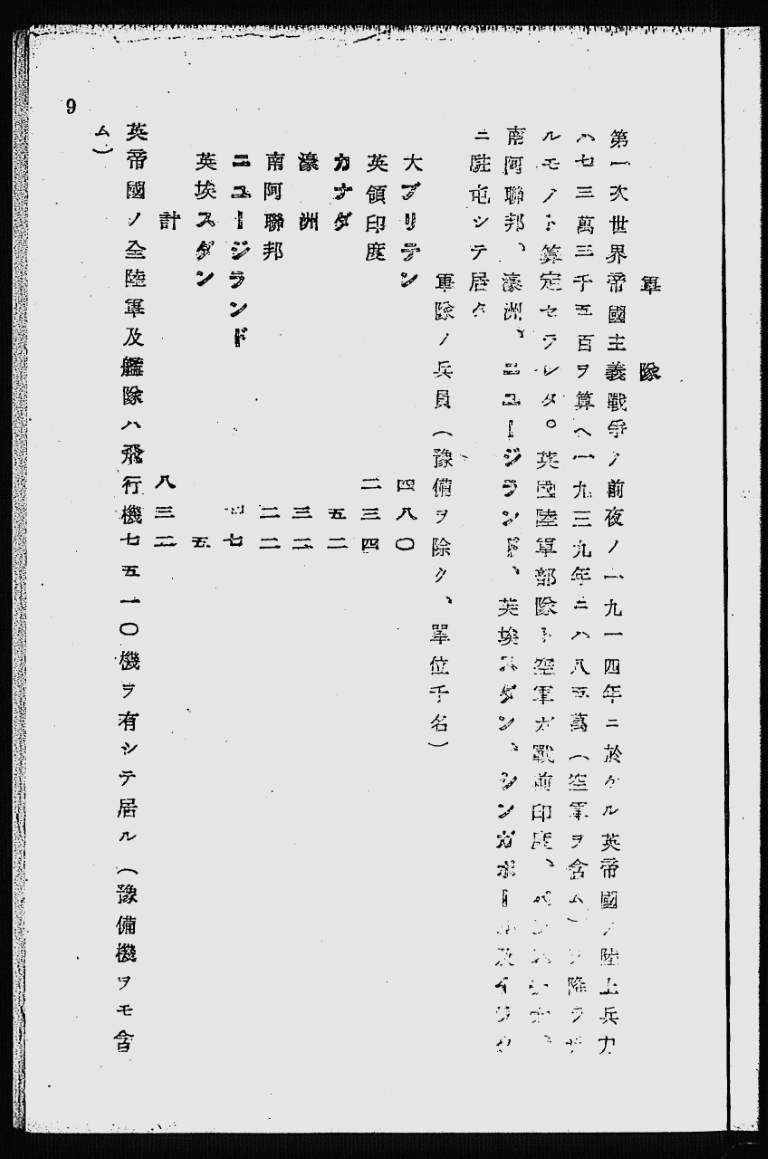 軍隊
第一次世界帝國主義戰爭ノ前夜ノ一九一四年ニ於ケル英帝國ノ陸上兵力
ハ七三萬三千五百ヲ算ヘ一九三九年ニハ八五萬(空軍ヲ含ム)ヲ降ラザ
ルモノト算定セラレタ。英國陸軍部隊ト空軍ガ戰前印度、
南阿聯邦、濠洲、ニュージランド、英埃スダン、シンガポール及イラク
ニ駐屯シテ居タ
軍隊ノ兵員(豫備ヲ除ク、單位千名)
大ブリテン 四八〇
英領印度 二三四
カナダ 五二
濠洲 三二
南阿聯邦 二二
ニュージランド 七
英埃スダン 五
計 八三二
英帝國ノ全陸軍及艦隊ハ飛行機七五一〇機ヲ有シテ居ル(豫備機ヲモ含
ム)
9